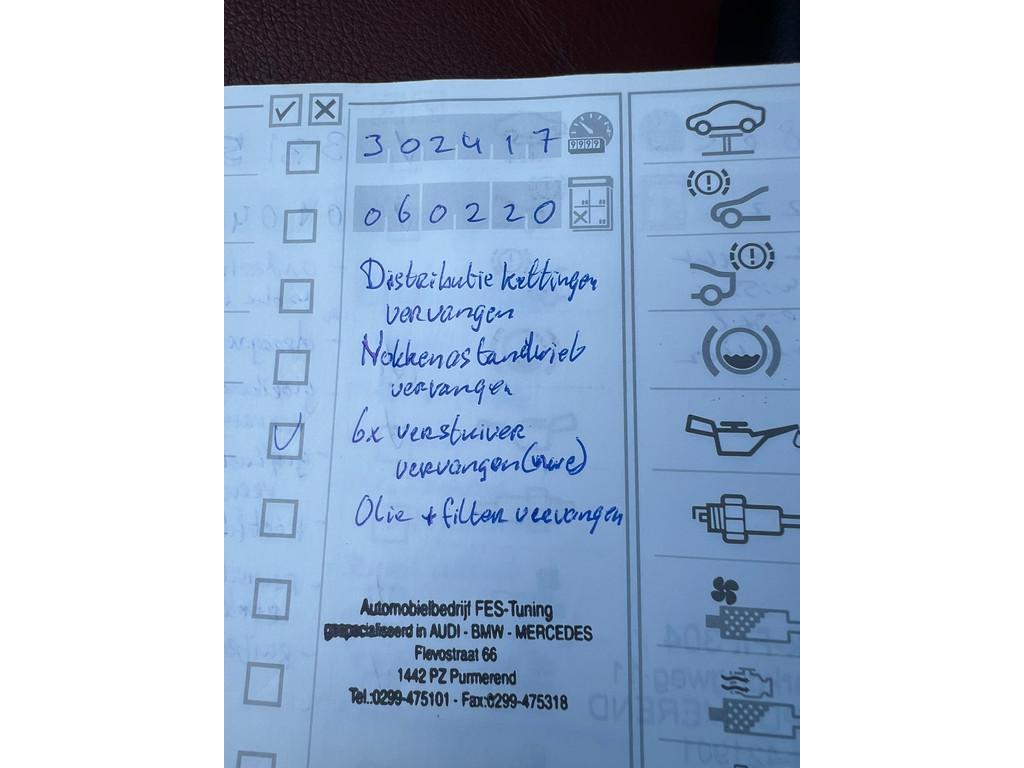 302417
9999
060220
Distributie kettingen
vervangen
Nokkenastandwiel
vervangen
6x verstuiver
vervangen
Olie + filter vervangen
Automobielbedrijf FES-Tuning
gespecialiseerd in AUDI - BMW - MERCEDES
Flevostraat 66
1442 PZ Purmerend
Tel.:0299-475101 - Fax:0299-475318